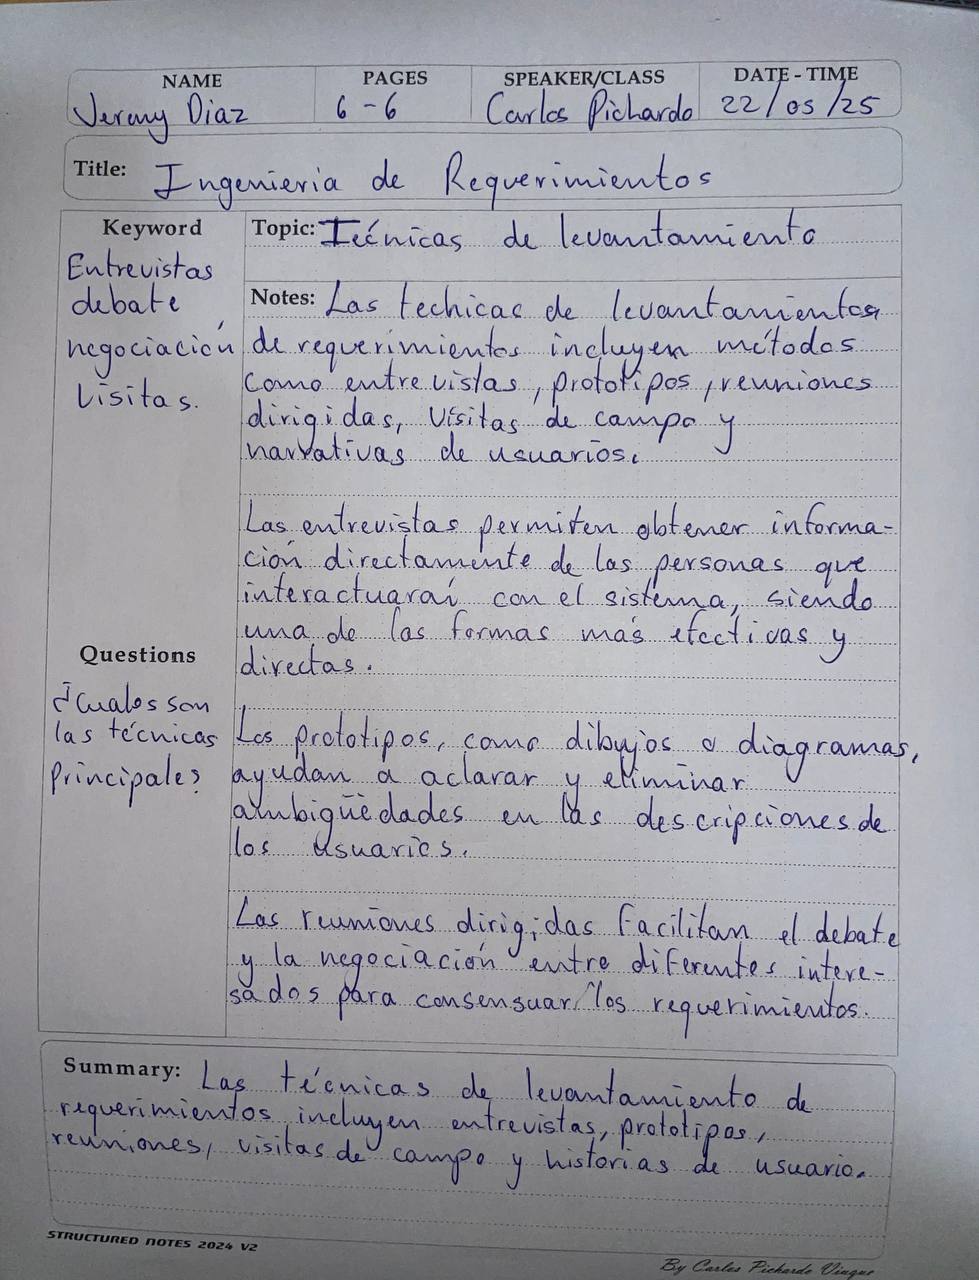 NAME PAGES SPEAKER/CLASS DATE - TIME
Jeremy Diaz 6 - 6 Carlos Pichardo 22/05/25
Title: Ingenieria de Requerimientos
Keyword
Entrevistas
debate
negociación
Visitas.
Topic: Técnicas de levantamiento
Notes: Las techicas de levantamientos
de requerimientos incluyen métodos
como entrevistas, prototipos, reuniones
dirigidas, visitas de campo y
narrativas de usuarios.
Las entrevistas permiten obtener informa-
ción directamente de las personas que
interactuaraí con el sistema, siendo
una de las formas más efectivas y
directas.
Los prototipos, como dibujos o diagramas,
ayudan a aclarar y eliminar
ambigüedades en las descripciones de
los usuarios.
Las reuniones dirigidas facilitan el debate
y la negociación entre diferentes intere-
sados para consensuar los requerimientos.
Questions
¿Cuales son
las técnicas
principale?
Summary: Las técnicas de levantamiento de
requerimientos incluyen entrevistas, prototipos,
reuniones, visitas de campo y historias de usuario.
STRUCTURED NOTES 2024 V2
By Carlos Pichardo Viuque